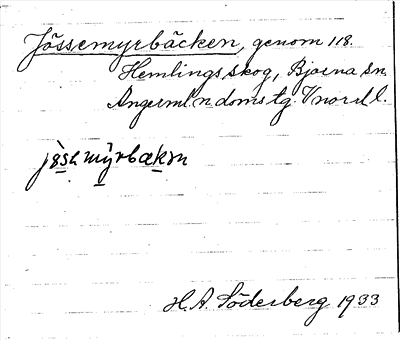 Jössemyrbäcken, genom 118.
Hemlings skog, Bjærna sn.
Ångerml. n. domstg. Vnorrl l.
H.A. Söderberg 1933